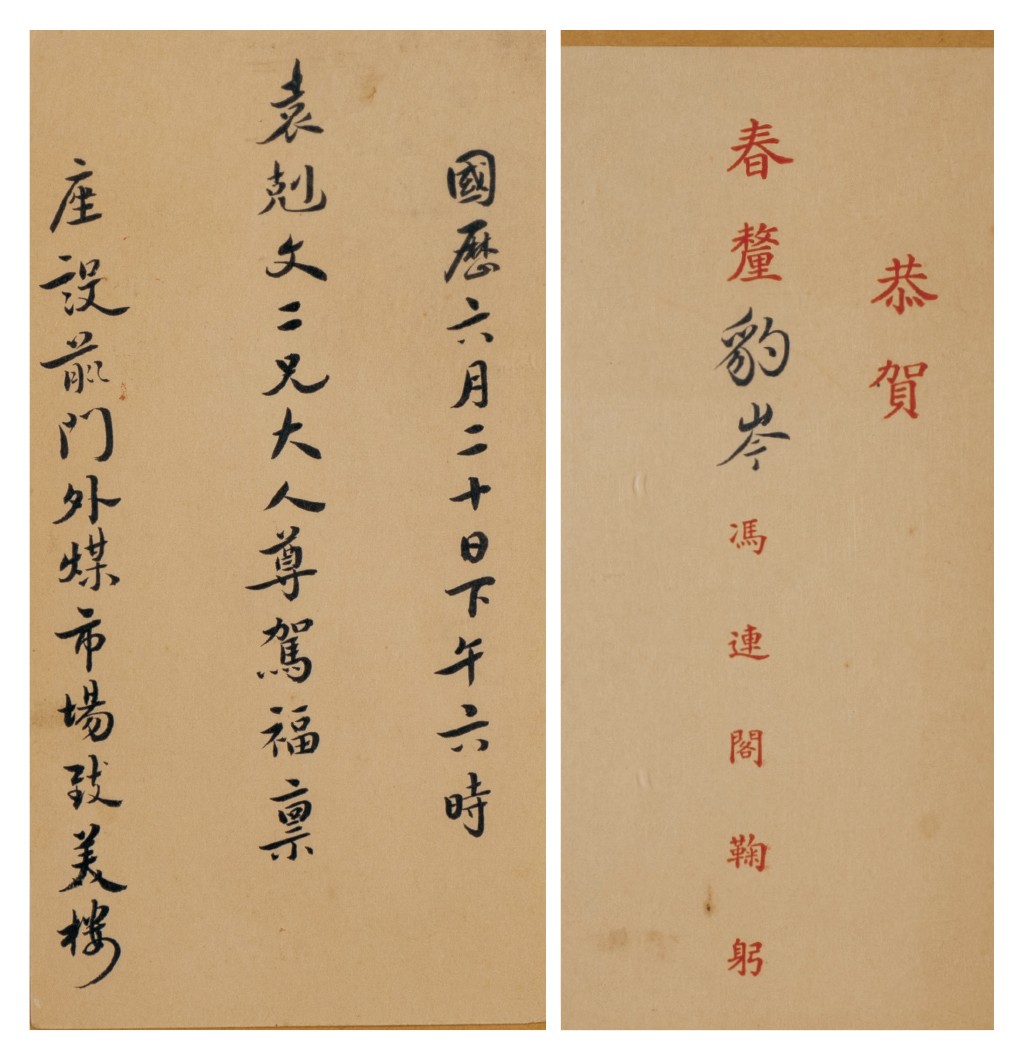 國歷六月二十日下午六時
袁剋文二兄大人尊駕福禀
座設前門外煤市場致美樓
恭賀
春釐豹岑馮連閣鞠躬